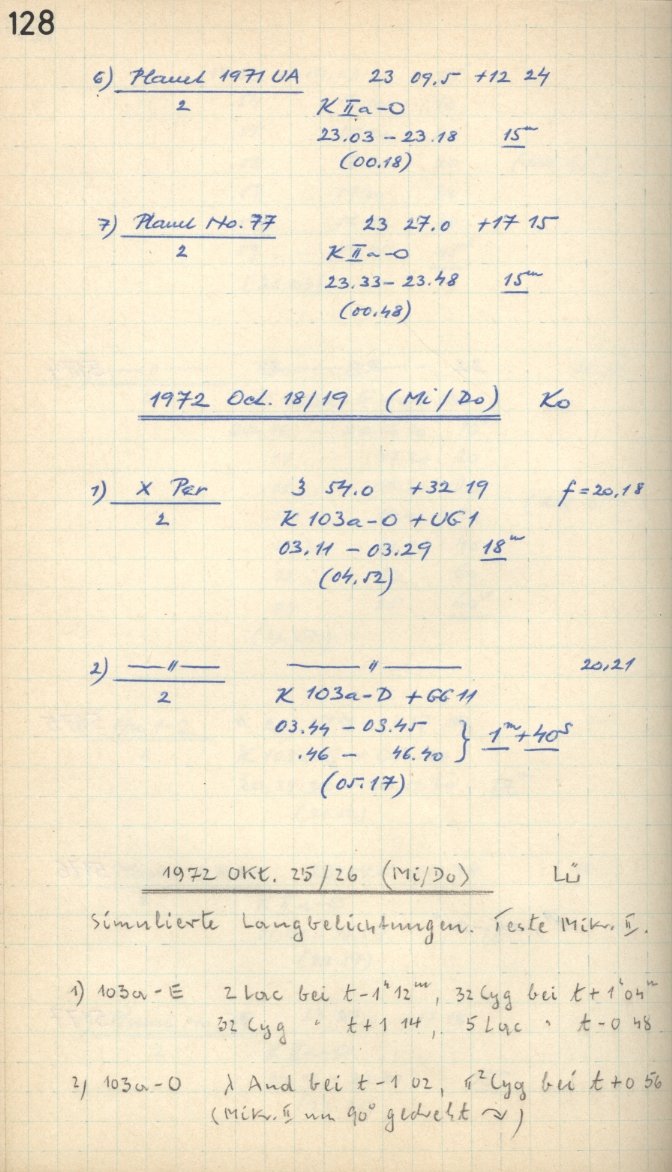 128
6) Planet 1971 UA 23 09.5 +12 24
2 K IIa-O
23.03 – 23.18 15ᵐ
(00.18)
7) Planet No. 77 23 27.0 +17 15
2 K IIa-O
23.33 – 23.48 15ᵐ
(00.48)
1972 Oct. 18/19 (Mi/Do) Ko
1) X Per 3 54.0 +32 19 f = 20,18
2 K 103a-O + UG1
03.11 – 03.29 18ᵐ
(04.52)
2) —〃— —〃— 20,21
2 K 103a-D + GG11
03.44 – 03.45 } 1ᵐ+40ˢ
.46 – 46.40
(05.17)
1972 OKt. 25/26 (Mi/Do) Lü
Simulierte Langbelichtungen. Teste Mikr. II.
1) 103a-E 2 Lac bei t-1ʰ12ᵐ, 32 Cyg bei t+1ʰ04ᵐ
32 Cyg " t+1 14, 5 Lac " t-0 48
2) 103a-O λ And bei t-1 02, π² Cyg bei t+0 56
(Mikr. II um 90° gedreht ↷)